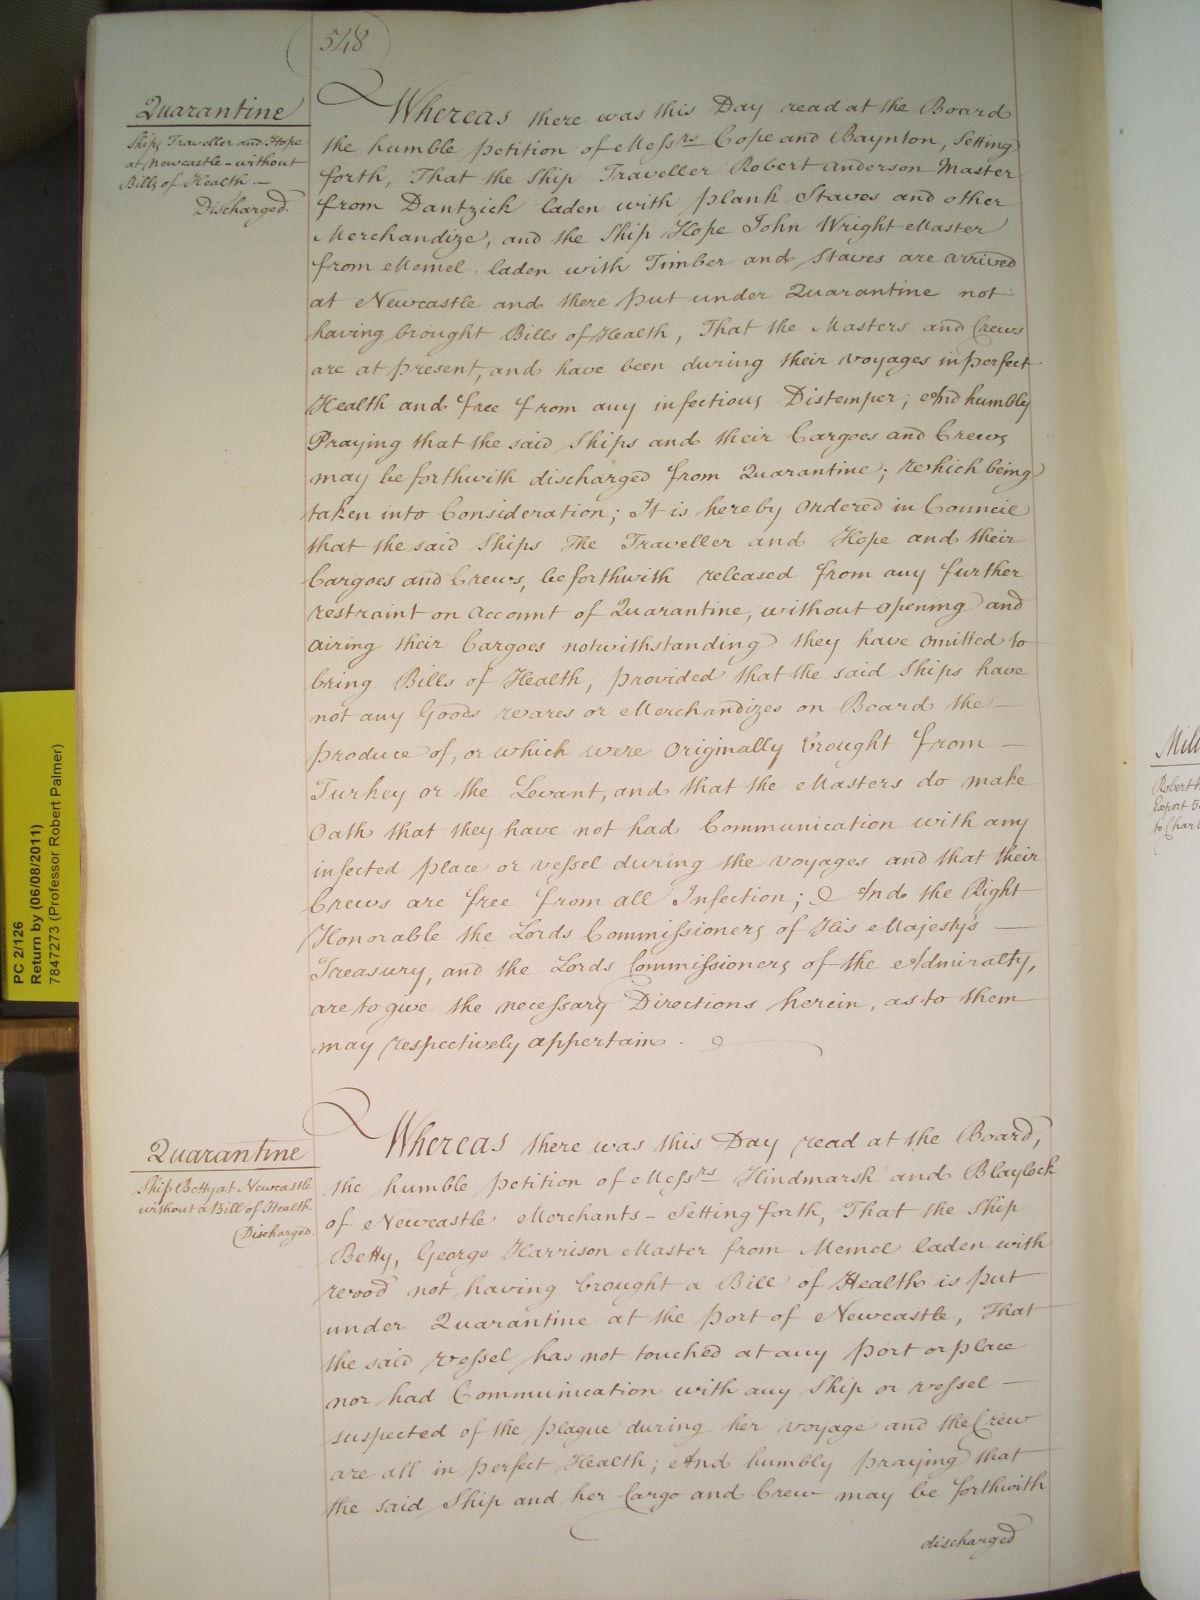 548
Quarantine
Ships Traveller and Hope
at Newcastle - without
Bills of Health. —
Discharged.
Whereas there was this Day read at the Board
the humble petition of Messrs Cope and Baynton, Setting
forth, That the Ship Traveller Robert Anderson Master
from Dantzick laden with plank Staves and other
Merchandize, and the Ship Hope John Wright Master
from Memel, laden with Timber and Staves are arrived
at Newcastle and there put under Quarantine not
having brought Bills of Health, That the Masters and Crews
are at present, and have been during their voyages in perfect
Health and free from any infectious Distemper; And humbly
Praying that the said Ships and their Cargoes and Crews
may be forthwith discharged from Quarantine; which being
taken into Consideration; It is hereby Ordered in Council
that the said Ships The Traveller and Hope and their
Cargoes and Crews, be forthwith released from any further
restraint on Account of Quarantine, without opening and
airing their Cargoes notwithstanding they have omitted to
bring Bills of Health; provided that the said Ships have
not any Goods wares or Merchandizes on Board the —
produce of, or which were Originally brought from —
Turkey or the Levant, and that the Masters do make
Oath that they have not had Communication with any
infected place or vessel during the voyages and that their
Crews are free from all Infection; And the Right
Honorable the Lords Commissioners of His Majesty's —
Treasury, and the Lords Commissioners of the Admiralty,
are to give the necessary Directions herein, as to them
may respectively appertain.
Quarantine
Ship Betty at Newcastle
without a Bill of Health.
Discharged.
Whereas there was this Day read at the Board,
the humble petition of Messrs Hindmarsh and Blaylock
of Newcastle Merchants - Setting forth, That the Ship
Betty, George Harrison Master from Memel laden with
wood not having brought a Bill of Health is put
under Quarantine at the port of Newcastle, That
the said vessel has not touched at any port or place
nor had Communication with any Ship or vessel —
suspected of the plague during her voyage and the Crew
are all in perfect Health; And humbly praying that
the said Ship and her Cargo and Crew may be forthwith
discharged
PC 2/126
Return by (06/08/2011)
7847273 (Professor Robert Palmer)